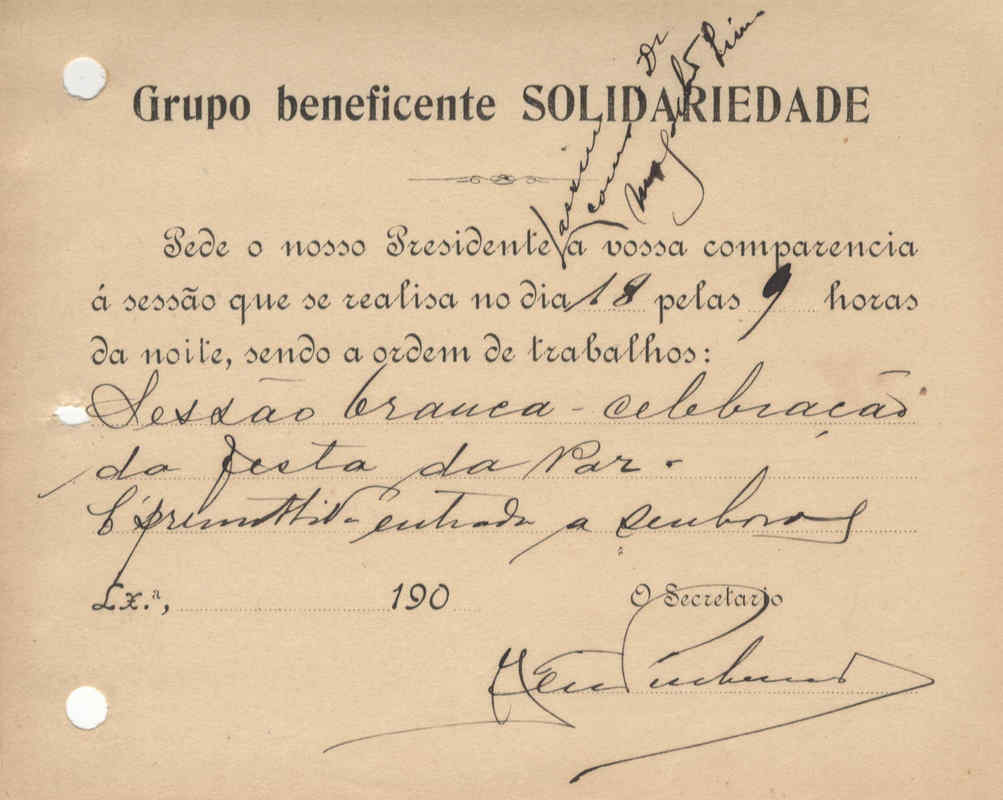 Grupo beneficente SOLIDARIEDADE
assim
como Dr
Magalhães Lima
Pede o nosso Presidente a vossa comparencia
á sessão que se realisa no dia 18 pelas 9 horas
da noite, sendo a ordem de trabalhos:
Sessão branca - celebração
da festa da Paz.
E' premettida entrada a senhoras
Lx.ª, 190 O Secretario